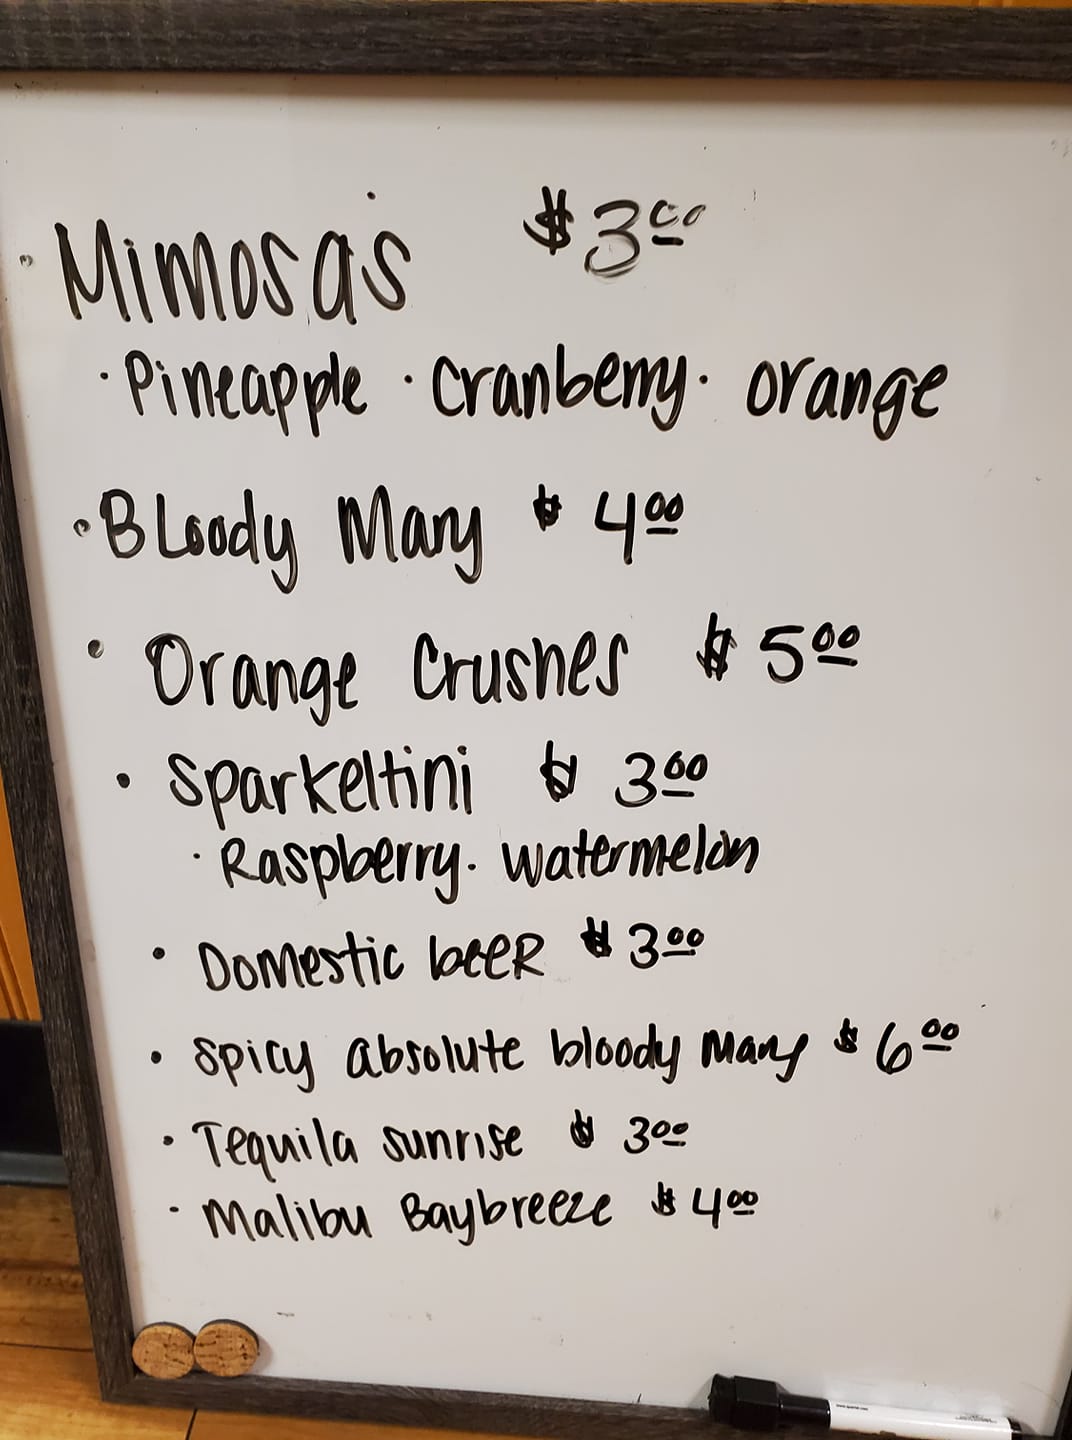 • Mimosa's $3.00
· Pineapple · Cranberry · orange
• Bloody Mary $4.00
• Orange Crushes $5.00
• Sparkeltini $3.00
· Raspberry · watermelon
• Domestic beer $3.00
• Spicy absolute bloody Mary $6.00
• Tequila sunrise $3.00
• Malibu Baybreeze $4.00